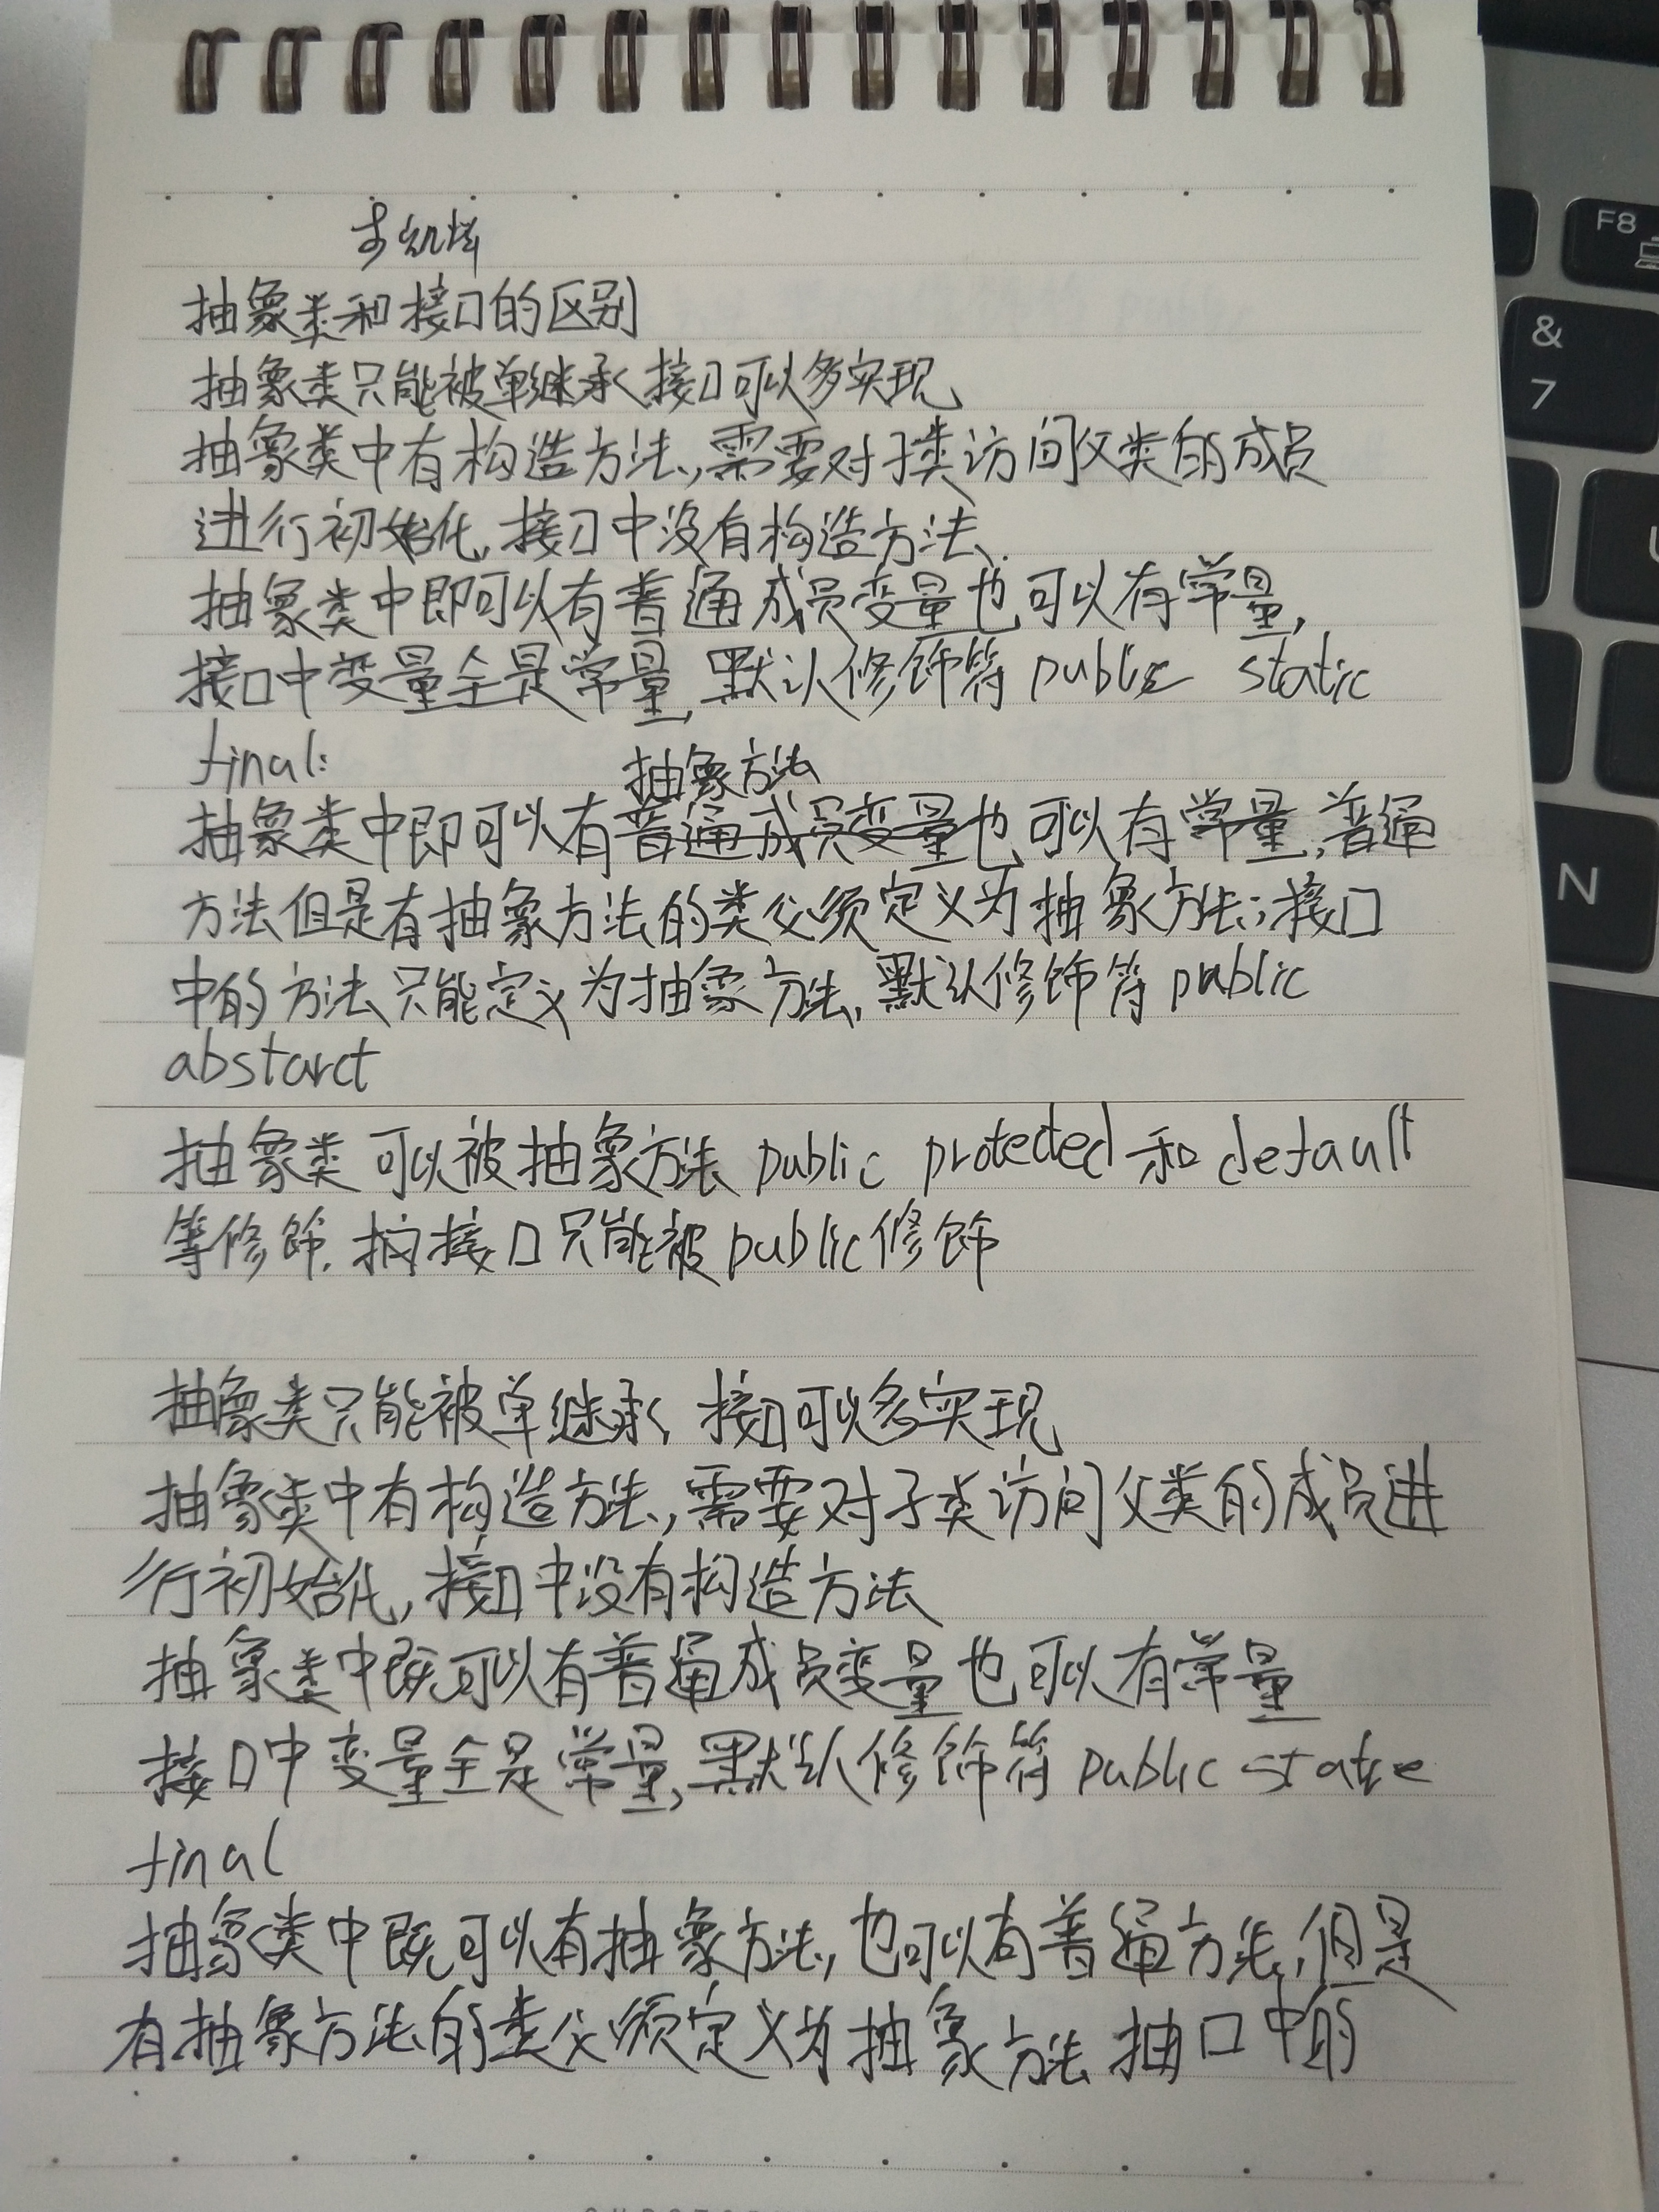 抽象类和接口的区别
抽象类只能被单继承 接口可以多实现
抽象类中有构造方法,需要对子类访问父类的成员
进行初始化,接口中没有构造方法.
抽象类中即可以有普通成员变量也可以有常量,
接口中变量全是常量,默认修饰符 public static
final:
抽象方法
抽象类中即可以有普通成员变量也可以有常量,普通
方法但是有抽象方法的类必须定义为抽象方法;接口
中的方法只能定义为抽象方法,默认修饰符 public
abstarct
抽象类可以被抽象方法 public protected 和 default
等修饰.接口只能被public修饰
抽象类只能被单继承 接口可以多实现
抽象类中有构造方法,需要对子类访问父类的成员进
行初始化,接口中没有构造方法
抽象类中既可以有普通成员变量也可以有常量
接口中变量全是常量,默认修饰符 public static
final
抽象类中既可以有抽象方法,也可以有普通方法,但是
有抽象方法的类必须定义为抽象方法 抽口中的
F8
&
7
N